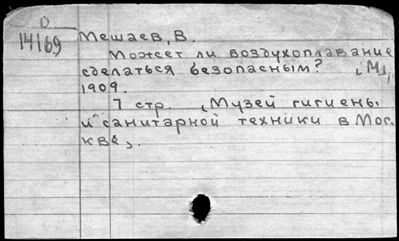 О
14169
Мешаев, В.
Может ли воздухоплавание
сделаться безопасным? [М],
1909.
7 стр. [Музей гигиены
и санитарной техники в Мос-
кве].